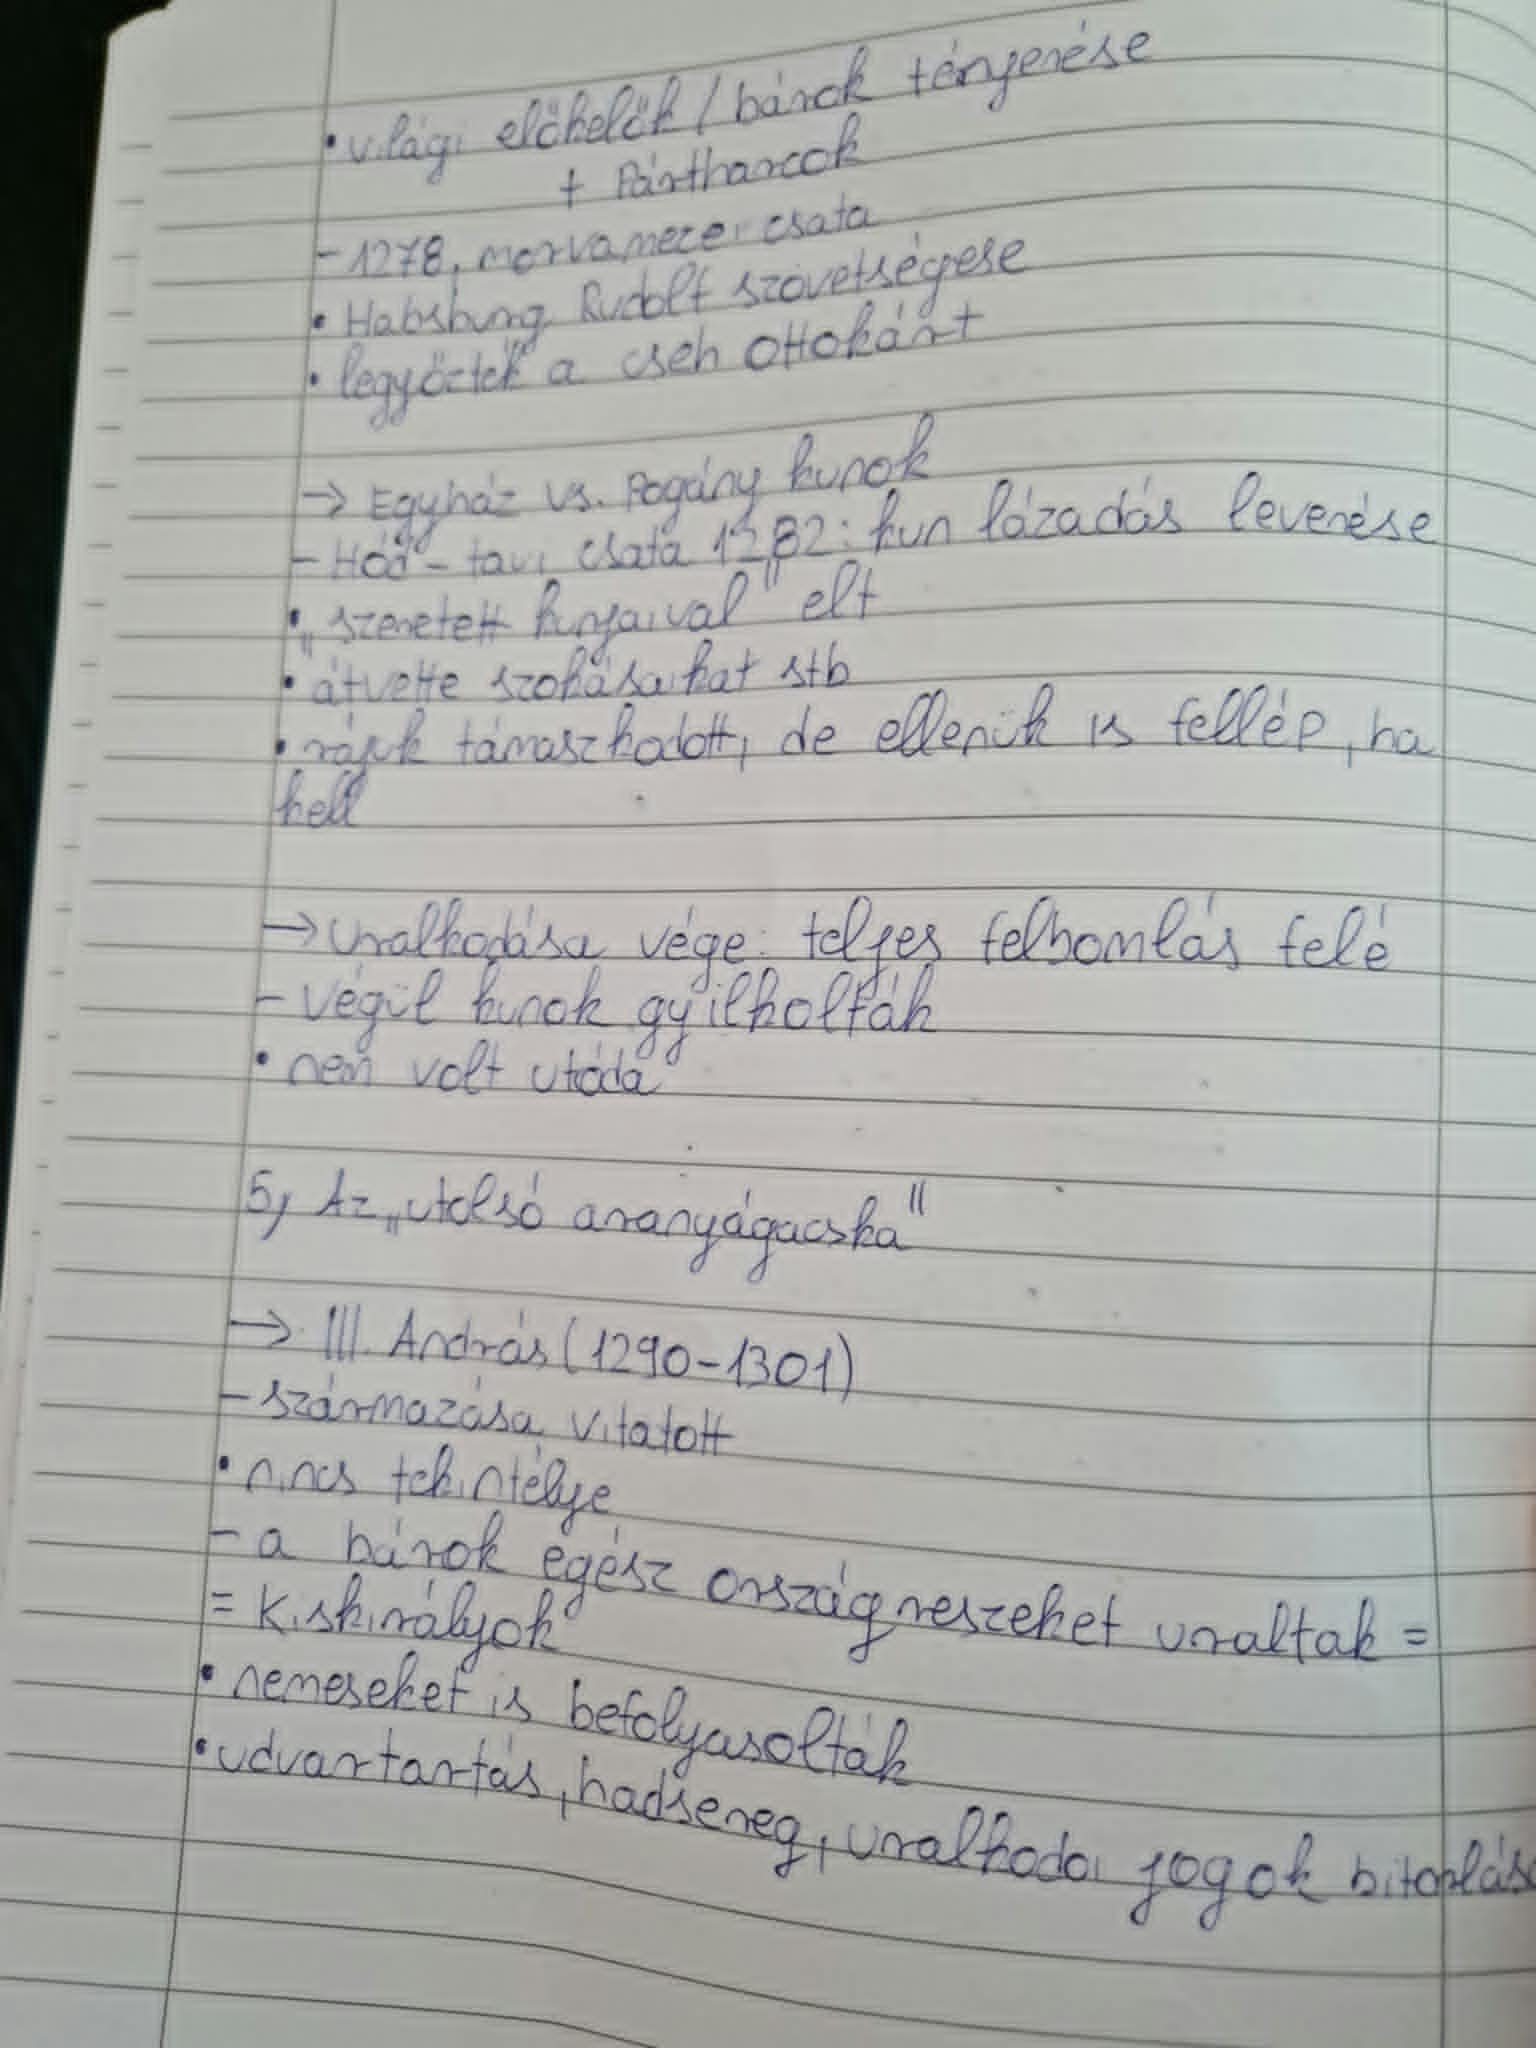 • világi előkelők / bárok térnyerése
+ Pártharcok
- 1278, morvamezei csata
• Habsburg Rudolf szövetségese
• legyőzték a cseh Ottokárt
→ Egyház vs. Pogány kunok
- Hód-tavi csata 1282: kun lázadás leverése
• „szeretett kunjaival" élt
• átvette szokásaikat stb
• rájuk támaszkodott, de ellenük is fellép, ha
kell
→ uralkodása vége: teljes felbomlás felé
- végül kunok gyilkolták
• nem volt utóda
5, Az „utolsó aranyágacska"
→ III. András (1290-1301)
- származása vitatott
• nincs tekintélye
- a bárok egész országreszeket uraltak =
= Kiskirályok
• nemeseket is befolyasolták
• udvartartás, hadsereg, uralkodoi jogok bitorlása